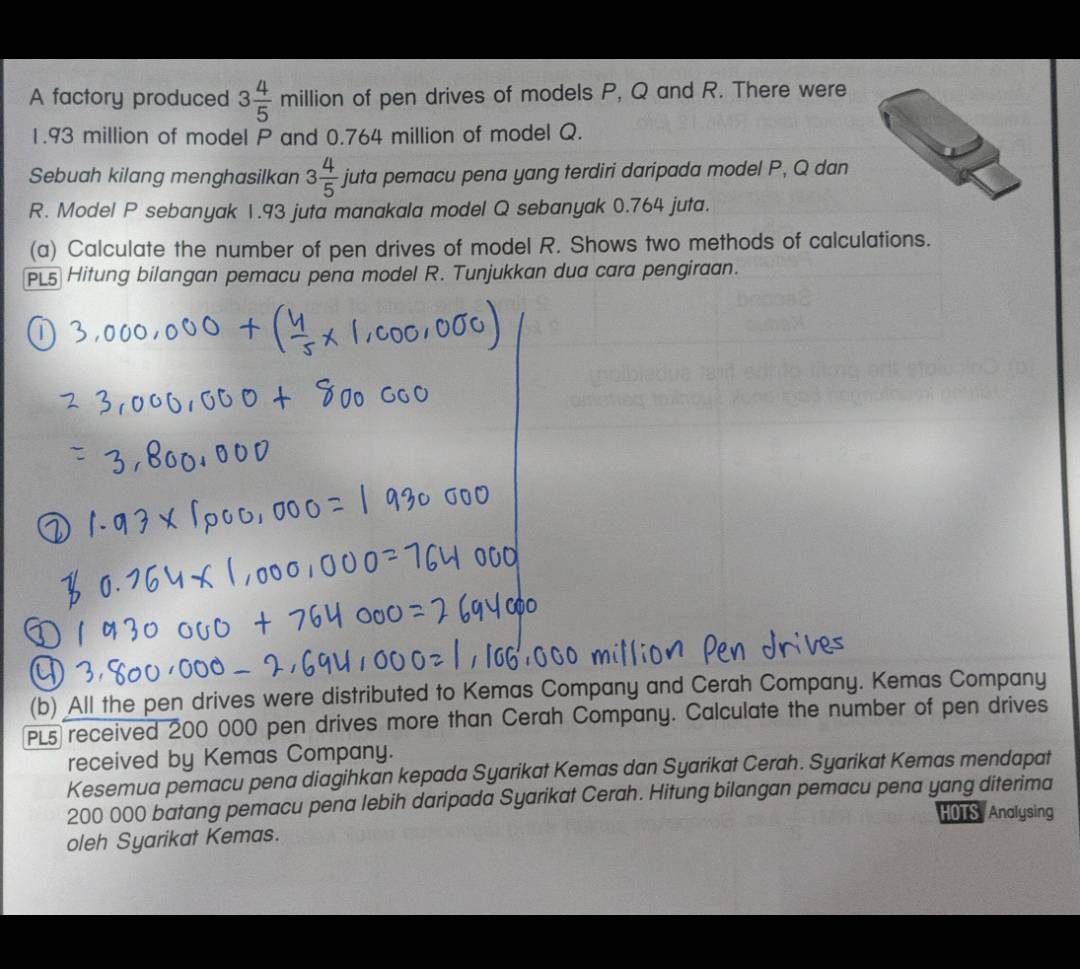 A factory produced 3 4/5 million of pen drives of models P, Q and R. There were
1.93 million of model P and 0.764 million of model Q.
Sebuah kilang menghasilkan 3 4/5 juta pemacu pena yang terdiri daripada model P, Q dan
R. Model P sebanyak 1.93 juta manakala model Q sebanyak 0.764 juta.
(a) Calculate the number of pen drives of model R. Shows two methods of calculations.
PL5 Hitung bilangan pemacu pena model R. Tunjukkan dua cara pengiraan.
① 3,000,000 + (4/5 × 1,000,000)
= 3,000,000 + 800 000
= 3,800,000
② 1.93 × 1,000,000 = 1 930 000
0.764 × 1,000,000 = 764 000
③ 1 930 000 + 764 000 = 2 694 000
④ 3,800,000 - 2,694,000 = 1,106,000 million Pen drives
(b) All the pen drives were distributed to Kemas Company and Cerah Company. Kemas Company
PL5 received 200 000 pen drives more than Cerah Company. Calculate the number of pen drives
received by Kemas Company.
Kesemua pemacu pena diagihkan kepada Syarikat Kemas dan Syarikat Cerah. Syarikat Kemas mendapat
200 000 batang pemacu pena lebih daripada Syarikat Cerah. Hitung bilangan pemacu pena yang diterima
oleh Syarikat Kemas. HOTS Analysing